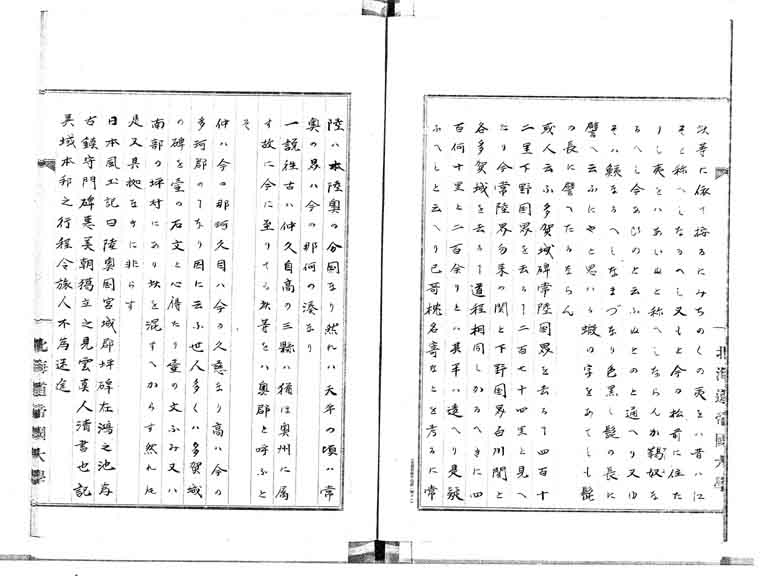 次等に依て按るにみちのくの夷をハ昔ハに
そと称へしなるへし又もと今の松前に住た
りし夷をハあいぬと称へしならんか鞨奴を
るへし今あひのと云ふぬとのと通へり又ゆ
そハ鰕なるへしなまづなり色黒し髭の長に
譬へ云ふにやと思ハる蝦の字をあてしも髭
の長に譬へたるならん
或人云ふ多賀城碑常陸国界を去る丁四百十
二里下野国界を去る丁二百七十四里と見へ
たり今常陸界勿来の関と下野国界白川関と
各多賀城を去る丁道程相同しかるへきに四
百何十里と二百余りとハ其半ハ違へり是疑
ふへしと云へり已哥枕名寄なとを考るに常
北海道帝国大学
陸ハ本陸奥の分国なり然れハ天平の頃ハ常
奥の界ハ今の那何の湊なり
一説往古ハ仲久自高の三縣ハ猶ほ奥州に属
す故に今に至りても此等をハ奥郡と呼ふと
そ
仲ハ今の那珂久自ハ今の久慈なり高ハ今の
多珂郡の丁なり因に云ふ世人多くハ多賀城
の碑を壷の石文と心得たり壷の文ふみ又ハ
南部の坪村にあり此を混すへからす然れ𪜈
是又具拠なきに非らす
日本風土記曰陸奥国宮城郡坪碑在鴻之池為
古鎮守門碑恵美朝獦立之見雲真人清書也記
異域本邦之行程令旅人不為迷途
北海道帝国大学